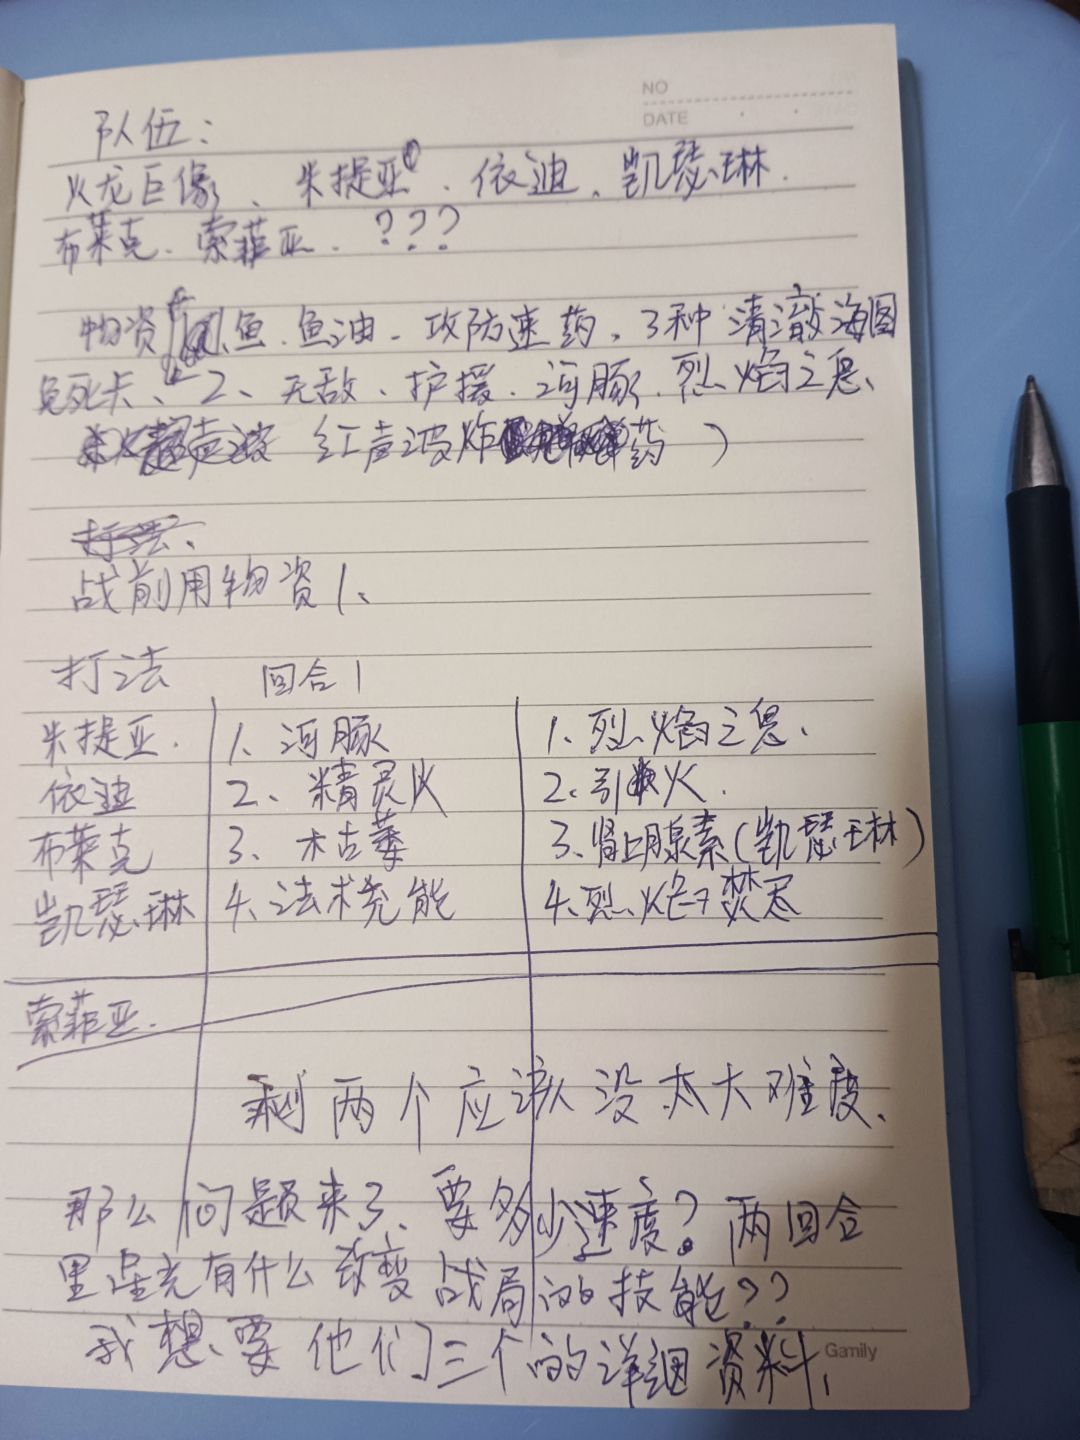 NO
DATE
队伍:
火龙巨像、米提亚、依迪、凯瑟琳.
布莱克、索菲亚、???
物资 鱼、鱼油、攻防速药、3种清澈海图
免死卡、2、无敌、护援、河豚、烈焰之息、
红声波炸药)
打法、
战前用物资1、
打法 回合1
米提亚. 1、河豚 1、烈焰之息.
依迪 2、精灵火 2、引火.
布莱克 3、木古萎 3、肾上腺素(凯瑟琳)
凯瑟琳 4、法术充能 4、烈焰焚尽
索菲亚.
剩两个应该没太大难度、
那么问题来了、要多少速度?两回合
里星光有什么改变战局的技能??
我想要他们三个的详细资料、
Gamily